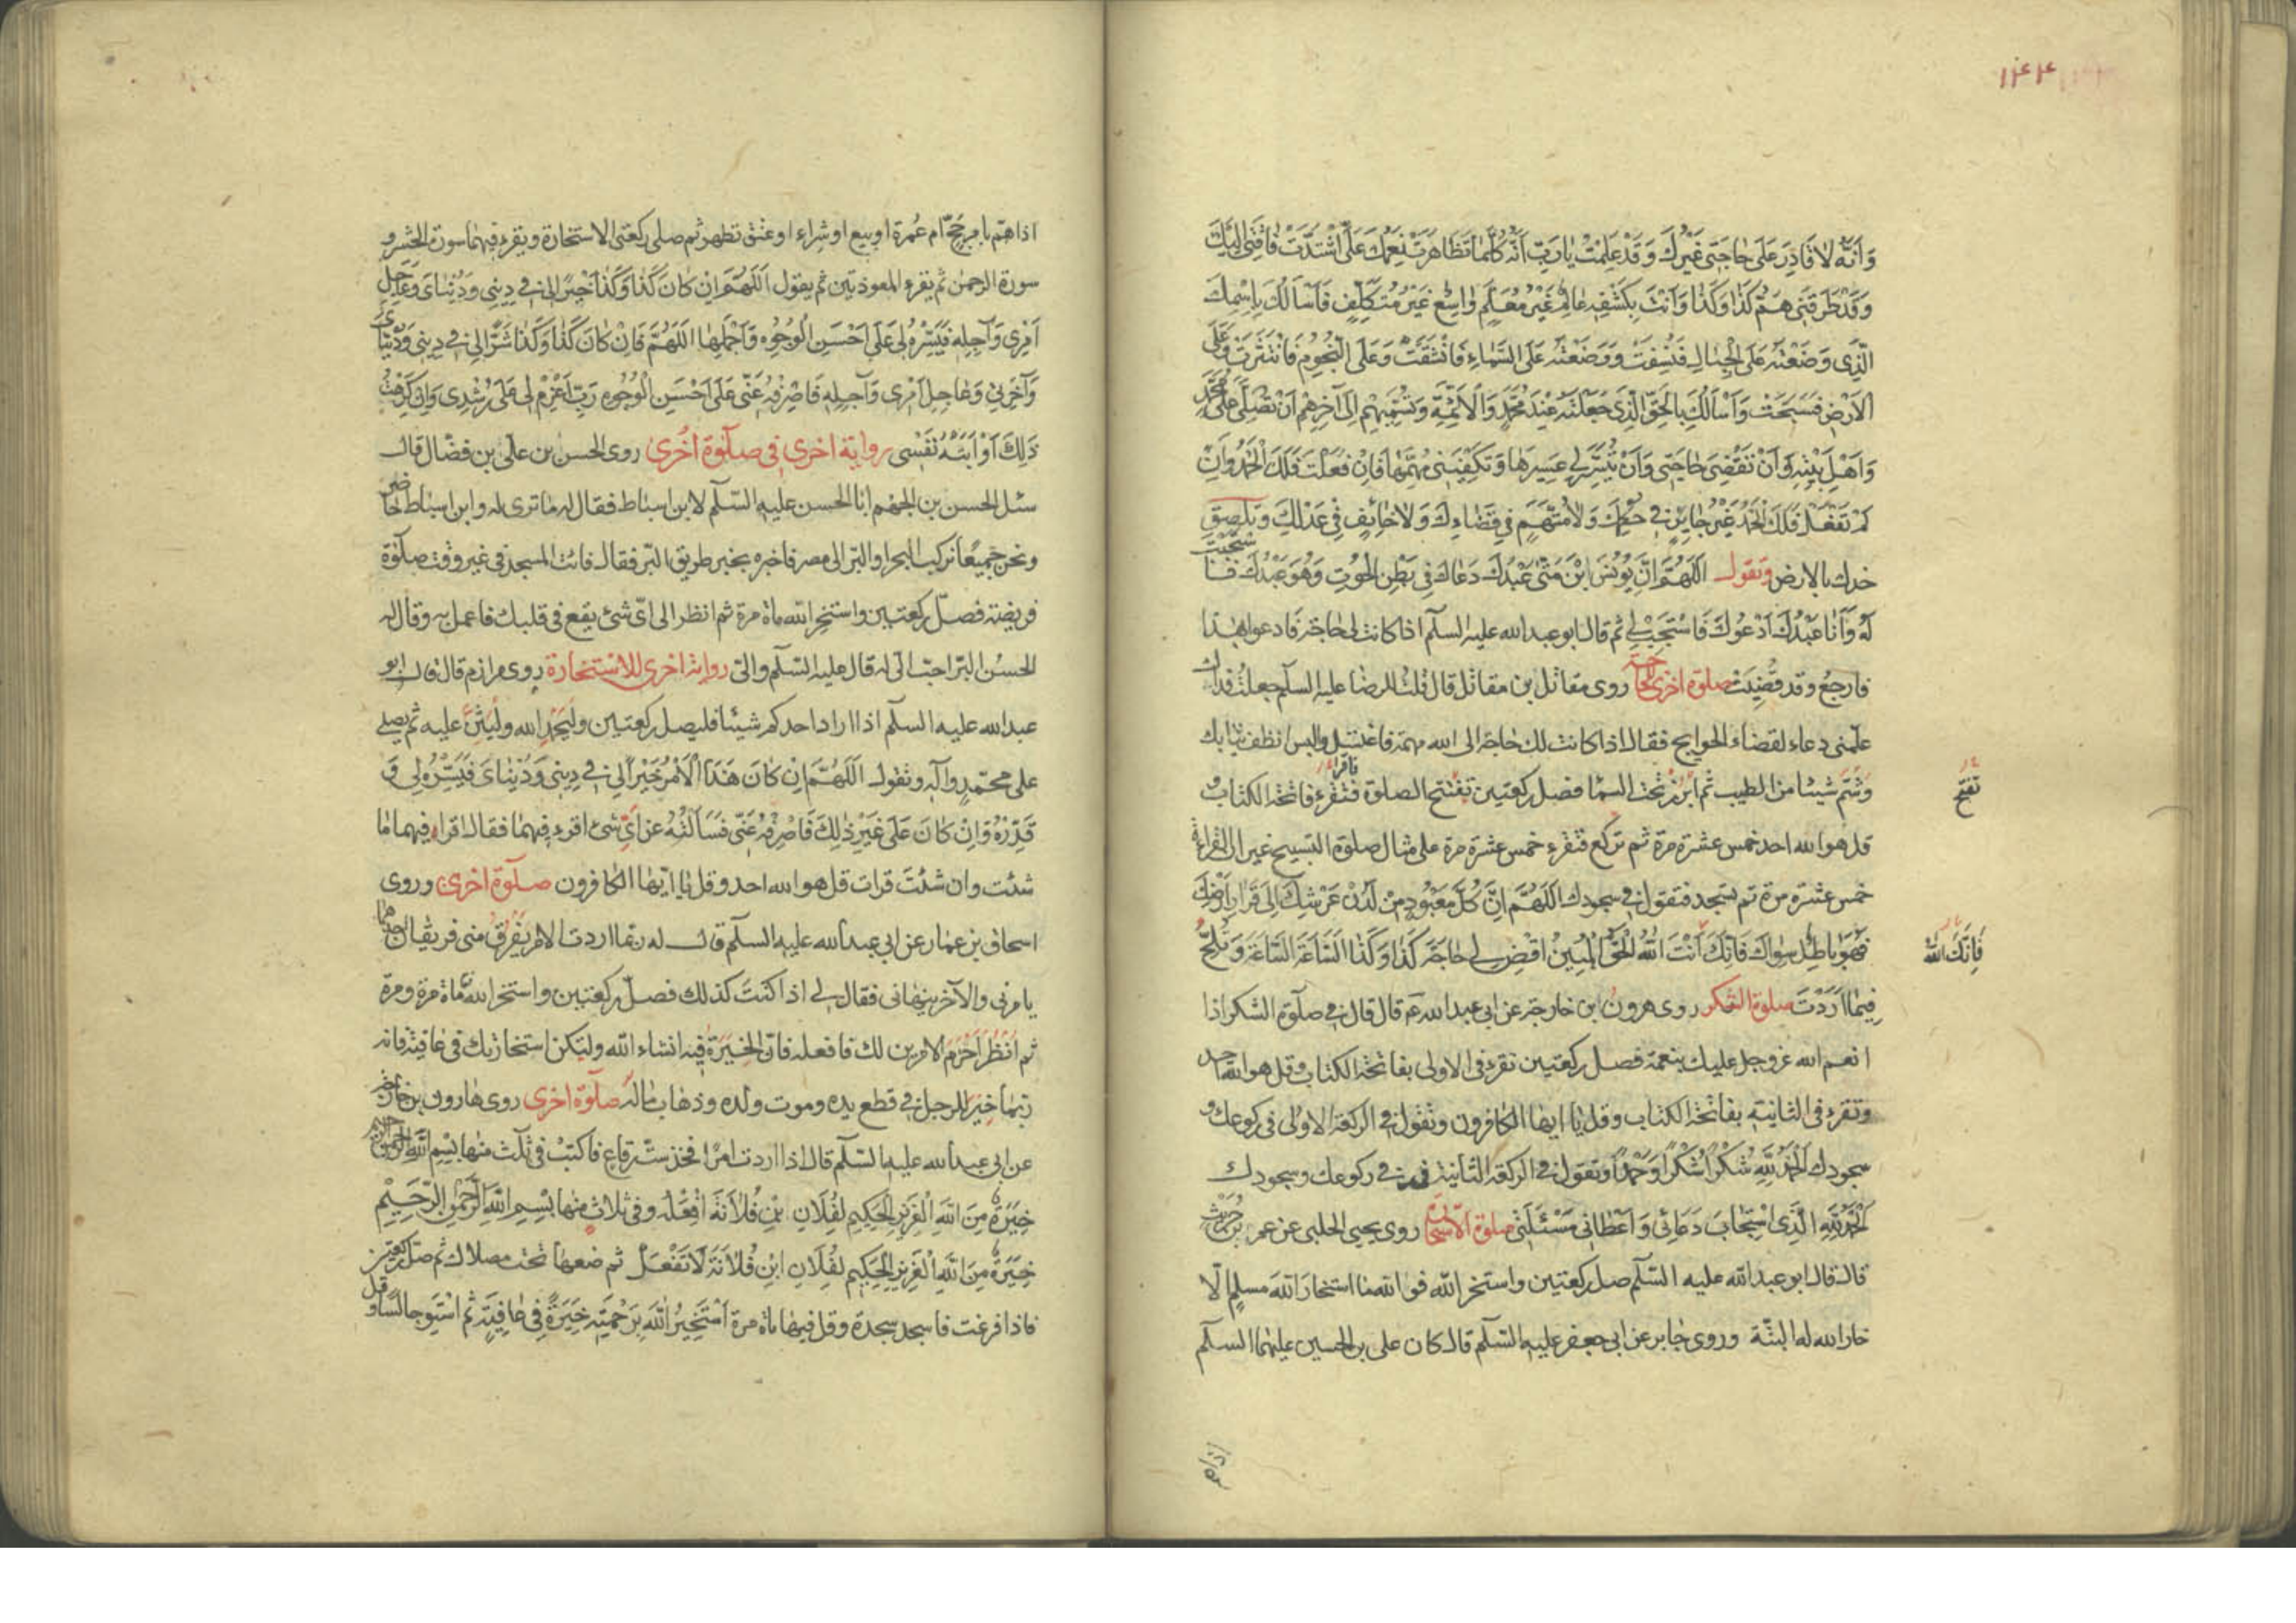 ١٤٤
وَاَنَّهُ لاٰ قَادِرَ عَلَى حَاجَتِى غَيْرُكَ وَقَدْ عَلِمْتُ يَا رَبِّ اَنَّهُ كُلَّمَا تَظَاهَرَتْ نِعَمُكَ عَلَىَّ اشْتَدَّتْ فَاقَتِى اِلَيْكَ
وَقَدْ طَرَقَنِى هَمُّ كَذَا وَكَذَا وَاَنْتَ بِكَشْفِهِ عَالِمٌ غَيْرُ مُعَلَّمٍ وَاسِعٌ غَيْرُ مُتَكَلِّفٍ فَاَسْاَلُكَ بِاِسْمِكَ
الَّذِى وَضَعْتَهُ عَلَى الْجِبَالِ فَنُسِفَتْ وَوَضَعْتَهُ عَلَى السَّمَاءِ فَانْشَقَّتْ وَعَلَى النُّجُومِ فَانْتَثَرَتْ وَعَلَى
الاَرْضِ فَسُطِحَتْ وَاَسْاَلُكَ بِالْحَقِّ الَّذِى جَعَلْتَهُ عِنْدَ مُحَمَّدٍ وَالاَئِمَّةِ وَتُسَمِّيهِمْ اِلَى آخِرِهِمْ اَنْ تُصَلِّىَ عَلَى مُحَمَّدٍ
وَاَهْلِ بَيْتِهِ وَاَنْ تَقْضِىَ حَاجَتِى وَاَنْ تُيَسِّرَ لِى عَسِيرَهَا وَتَكْفِيَنِى مُهِمَّهَا فَاِنْ فَعَلْتَ فَلَكَ الْحَمْدُ وَاِنْ
لَمْ تَفْعَلْ فَلَكَ الْحَمْدُ غَيْرُ جَايِرٍ فِى حُكْمِكَ وَلاَ مُتَّهَمٍ فِى قَضَاءِكَ وَلاَ حَائِفٍ فِى عَدْلِكَ وتلصق
خدك بالارض وتقول اَللّهُمَّ اِنَّ يُونُسَ ابْنَ مَتّٰى عَبْدُكَ دَعَاكَ فِى بَطْنِ الْحُوتِ وَهُوَ عَبْدُكَ فَاسْتَجَبْتَ
لَهُ وَاَنَا عَبْدُكَ اَدْعُوكَ فَاسْتَجِبْ لِى ثم قال ابو عبد الله عليه السلم اذا كانت لى حاجة فادعو بهذا
فارجع وقد قُضِيَت صلوة اخرى للحاجة روى مقاتل بن مقاتل قال قلت للرضا عليه السلم جعلت فداك
علمنى دعاء لقضاء الحوايج فقال اذا كانت لك حاجة الى الله مهمة فاغتسل والبس انظف ثيابك
وَشُمَّ شيئا من الطيب ثم ابرُز تحت السماء فصل ركعتين تفتتح الصلوة فتقرء فاتحة الكتاب و
تفتح
فاقرا
قل هو الله احد خمس عشرة مرة ثم تركع فتقرء خمس عشرة مرة على مثال صلوة التسبيح غير ان القراءة
خمس عشرة مرة ثم تسجد فتقول فى سجودك اَللّهُمَّ اِنَّ كُلَّ مَعْبُودٍ مِنْ لَدُنْ عَرْشِكَ اِلَى قَرَارِ اَرْضِكَ
فَهُوَ بَاطِلٌ سِوَاكَ فَاِنَّكَ اَنْتَ اللهُ الْحَقُّ الْمُبِينُ اقْضِ لِى حَاجَةَ كَذَا وَكَذَا السَّاعَةَ السَّاعَةَ وَتُلِحُّ
فَاِنَّكَ الله
فِيمَا اَرَدْتَ صلوة الشكر روى هرون ابن خارجة عن ابى عبد الله عم قال قال فى صلوة الشكر اذا
انعم الله عز وجل عليك بنعمة فصل ركعتين تقرء فى الاولى بفاتحة الكتاب وقل هو الله احد
وتقرء فى الثانية بفاتحة الكتاب وقل يا ايها الكافرون وتقول فى الركعة الاولى فى ركوعك و
سجودك اَلْحَمْدُ لِلّهِ شُكْرًا شُكْرًا وَحَمْدًا وتقول فى الركعة الثانية فى ركوعك وسجودك
اَلْحَمْدُ لِلّهِ الَّذِى اسْتَجَابَ دُعَائِى وَاَعْطَانِى مَسْئَلَتِى صلوة الاستخارة روى يحيى الحلبى عن عمرو بن حريث
قال قال ابو عبد الله عليه السّلم صل ركعتين واستخر الله فو الله ما استخار الله مسلم الّا
خار الله له البتّة وروى جابر عن ابى جعفر عليه السّلم قال كان على بن الحسين عليهما السلم
اذا هم
اذا هَمّ بامر حَجّ ام عُمرة او بيع او شِراء او عتق تطهر ثم صلى ركعتى الاستخارة ويقرء فيهما سورة الحشر و
سورة الرحمن ثم يقرء المعوذتين ثم يقول اَللّهُمَّ اِنْ كَانَ كَذَا وَكَذَا خَيْرًا لِى فِى دِينِى وَدُنْيَاىَ وَعَاجِلِ
اَمْرِى وَآجِلِهِ فَيَسِّرْهُ لِى عَلَى اَحْسَنِ الْوُجُوهِ وَاَجْمَلِهَا اَللّهُمَّ فَاِنْ كَانَ كَذَا وَكَذَا شَرًّا لِى فِى دِينِى وَدُنْيَاىَ
وَآخِرَتِى وَعَاجِلِ اَمْرِى وَآجِلِهِ فَاصْرِفْهُ عَنِّى عَلَى اَحْسَنِ الْوُجُوهِ رَبِّ اعْزِمْ لِى عَلَى رُشْدِى وَاِنْ كَرِهْتُ
ذَلِكَ اَوْ اَبَتْهُ نَفْسِى رواية اخرى فى صلوة اخرى روى الحسن بن على بن فضّال قال
سئل الحسن بن الجهم ابا الحسن عليه السّلم لابن اسباط فقال له ما ترى له وابن اسباط حاضر
ونحن جميعًا نركب البحر او البرّ الى مصر فاخبره بخبر طريق البرّ فقال فائت المسجد فى غير وقت صلوة
فريضة فصلّ ركعتين واستخر الله ماة مرة ثم انظر الى اىّ شئ يقع فى قلبك فاعمل به وقال له
الحسن البرّ احبّ الىّ له قال عليه السّلم والىّ رواية اخرى للاستخارة روى مرازم قال قال ابو
عبد الله عليه السلم اذا اراد احدكم شيئا فليصل ركعتين وليَحمَدِ الله وليُثْنِ عليه ثم يصلى
على محمّد وآله وتقول اَللّهُمَّ اِنْ كَانَ هَذَا الْاَمْرُ خَيْرًا لِى فِى دِينِى وَدُنْيَاىَ فَيَسِّرْهُ لِى وَ
قَدِّرْهُ وَاِنْ كَانَ عَلَى غَيْرِ ذٰلِكَ فَاصْرِفْهُ عَنِّى فَسَاَلْتُهُ عن اىّ شئ اقرء فيهما فقال اقرا فيهما ما
شئت وان شئتَ قرات قل هو الله احد وقل يا ايّها الكافرون صلوة اخرى وروى
اسحاق بن عمار عن ابى عبد الله عليه السلم قال قلت له ربّما اردت الامر يَفْرُقُ منى فريقان احدهما
يامرنى والآخر ينهانى فقال لى اذا كنتَ كذلك فصلّ ركعتين واستخر الله ماة مرة ومرة
ثم انظُر اَحْزَمَ الامرين لك فافعله فانّ الخِيَرَةَ فيه انشاء الله ولتكن استخارتك فى عافية فانه
ربّما خِيْرَ للرجل فى قطع يده وموت ولده وذهاب ماله صلوة اخرى روى هارون بن خارجة
عن ابى عبد الله عليه السّلم قال اذا اردت امرًا فخذ ستّ رقاع فاكتب فى ثلث منها بِسْمِ اللهِ الرَّحْمنِ الرَّحِيمِ
خِيَرَةٌ مِنَ اللهِ الْعَزِيزِ الْحَكِيمِ لِفُلَانِ بْنِ فُلَانَةَ اِفْعَلْهُ وفى ثلاث منها بِسْمِ اللهِ الرَّحْمنِ الرَّحِيمِ
خِيَرَةٌ مِنَ اللهِ الْعَزِيزِ الْحَكِيمِ لِفُلَانِ ابْنِ فُلَانَةَ لَا تَفْعَلْ ثم ضعها تحت مصلاك ثم صلّ ركعتين
فاذا فرغت فاسجد سجدة وقل فيها ماة مرة اَسْتَخِيرُ اللهَ بِرَحْمَتِهِ خِيَرَةً فِى عَافِيَةٍ ثم اسْتَوِ جالسًا وقل